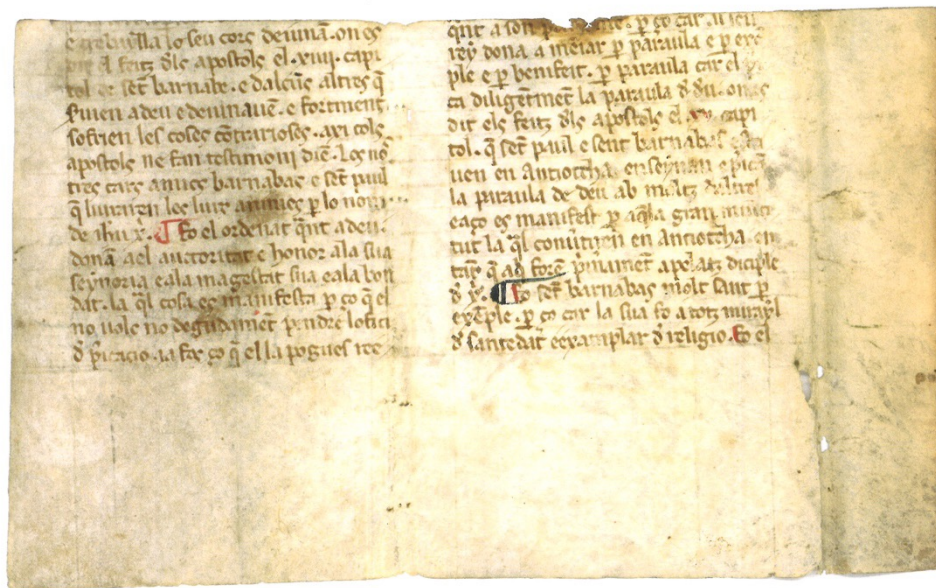 lo seu cors de iuna. on es
feitz dls apostols el .xiiii. capi
tol de set barnabe. e dalcus altres q̄
siruien a deu e deiunauē. e forment
sofrien les coses cōtrarioses. axi cols
apostols ne fan testimoni diē. Los nr̄e
tres cars amics barnabas e set paul
q̄ liuraren les lurs animes ꝑ lo nom
de ihu x̄. ¶ fo el ordenat q̄nt a deu.
donā a el auctoritat e honor a la sua
seynoria e a la magestat sua e a la bon
dat. la q̄l cosa es manifesta ꝑ ço q̄ el
no uolc no degudamēt pendre lofici
đ pricacio. ia fos ço q̄ ell a pogues
q̄nt a son ꝑ ço car
rey dona a meiar ꝑ paraula e ꝑ exē
ple e ꝑ benifeit. ꝑ paraula car el p̄i
ca diligētmēt la paraula đ đu. on es
dit els feitz dls apostols el .xv. capi
tol. q̄ set paul e sent barnabas esta
uen en antioccha enseynan e p̄ican
la paraula de deu ab molts daltres
e aço es manifest ꝑ aq̄la gran
tut la q̄l conuertiren en antioccha. en
tan q̄ aq̄ forē p̄mamēt apelatz diciple
đ x̄. ¶ fo set barnabas molt sant ꝑ
exēple. ꝑ ço car la sua fo a totz mirayl
đ santedat e exāmplar đ religio. fo el